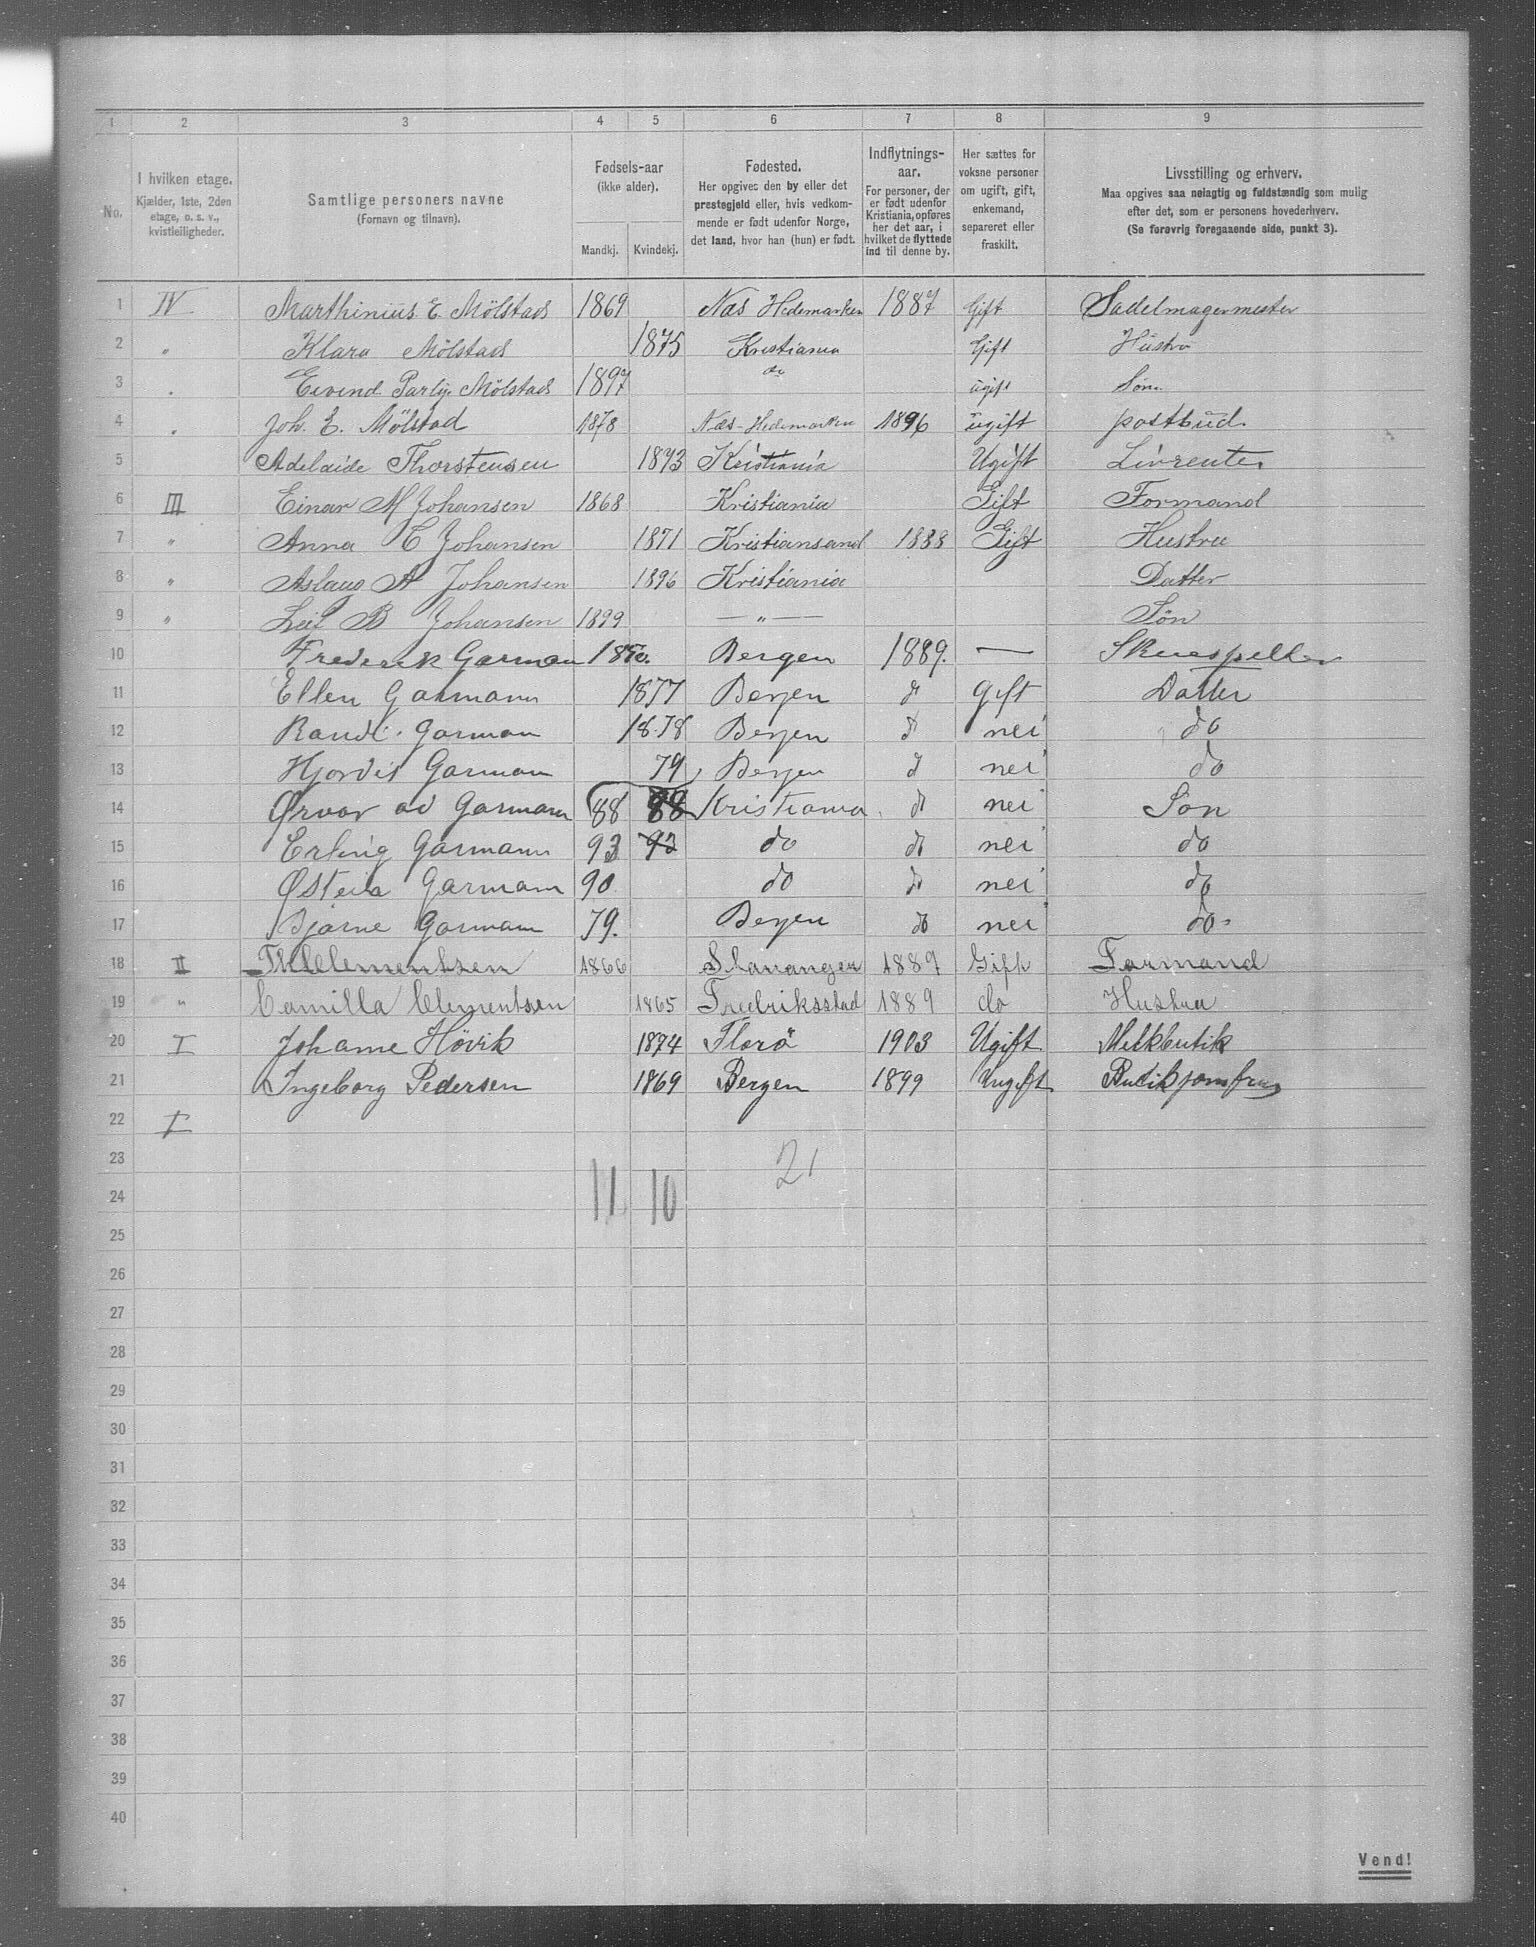 1 2 3 4 5 6 7 8 9
No.
I hvilken etage.
Kjælder, 1ste, 2den
etage, o. s. v.,
kvistleiligheder.
Samtlige personers navne
(Fornavn og tilnavn).
Fødsels-aar
(ikke alder).
Mandkj. Kvindekj.
Fødested.
Her opgives den by eller det
prestegjeld eller, hvis vedkom-
mende er født udenfor Norge,
det land, hvor han (hun) er født.
Indflytnings-
aar.
For personer, der
er født udenfor
Kristiania, opføres
her det aar, i
hvilket de flyttede
ind til denne by.
Her sættes for
voksne personer
om ugift, gift,
enkemand,
separeret eller
fraskilt.
Livsstilling og erhverv.
Maa opgives saa nøiagtig og fuldstændig som mulig
efter det, som er personens hovederhverv.
(Se forøvrig foregaaende side, punkt 3).
1 IV Marthinius E. Mölstad 1869 Næs Hedemarken 1887 Gift Sadelmagermester
2 " Klara Mölstad 1875 Kristiania Gift Hustru
3 " Eivend Mölstad 1897 do ugift Søn
4 " Joh. E. Mölstad 1878 Næs-Hedemarken 1896 ugift postbud.
5 Adelaide Thorstensen 1873 Kristiania Ugift Livrente
6 III Einar M Johansen 1868 Kristiania Gift Formand
7 " Anna C Johansen 1871 Kristiansand 1888 Gift Hustru
8 " Aslaug A Johansen 1896 Kristiania Datter
9 " Leif B Johansen 1899 — " — Søn
10 Frederik Garman 1850. Bergen 1889. — Skuespiller
11 Ellen Garmann 1877 Bergen do gift Datter
12 Randi Garman 1878 Bergen do nei do
13 Hjordis Garman 79 Bergen do nei do
14 Ørvar od Garmann 88 88 Kristiania do nei Søn
15 Erling Garmann 93 93 do do nei do
16 Østein Garmann 90 do do nei do
17 Bjarne Garmann 79. Bergen do nei do
18 II Clementsen 1866 Stavanger 1889 Gift Formand
19 " Camilla Clementsen 1865 Fredriksstad 1889 do Hustru
20 I Johanne Hövik 1874 Florö 1903 Ugift Melkbutik
21 Ingeborg Pedersen 1869 Bergen 1899 Ungift Butikjomfru
22 I
23 21
24 11 10
25
26
27
28
29
30
31
32
33
34
35
36
37
38
39
40
Vend!